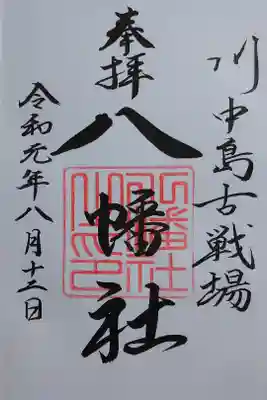 川中島古戦場
奉拝
八幡社
令和元年八月十二日